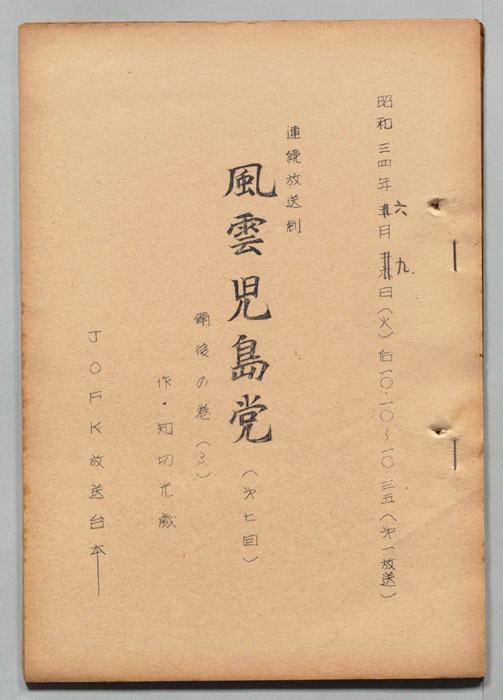 昭和三四年六月九日(火)后一〇・一〇～一〇・三五(㐧一放送)
連続放送劇
風雲児島党(㐧七回)
備後の巻(3)
作・知切光歳
JOFK放送台本